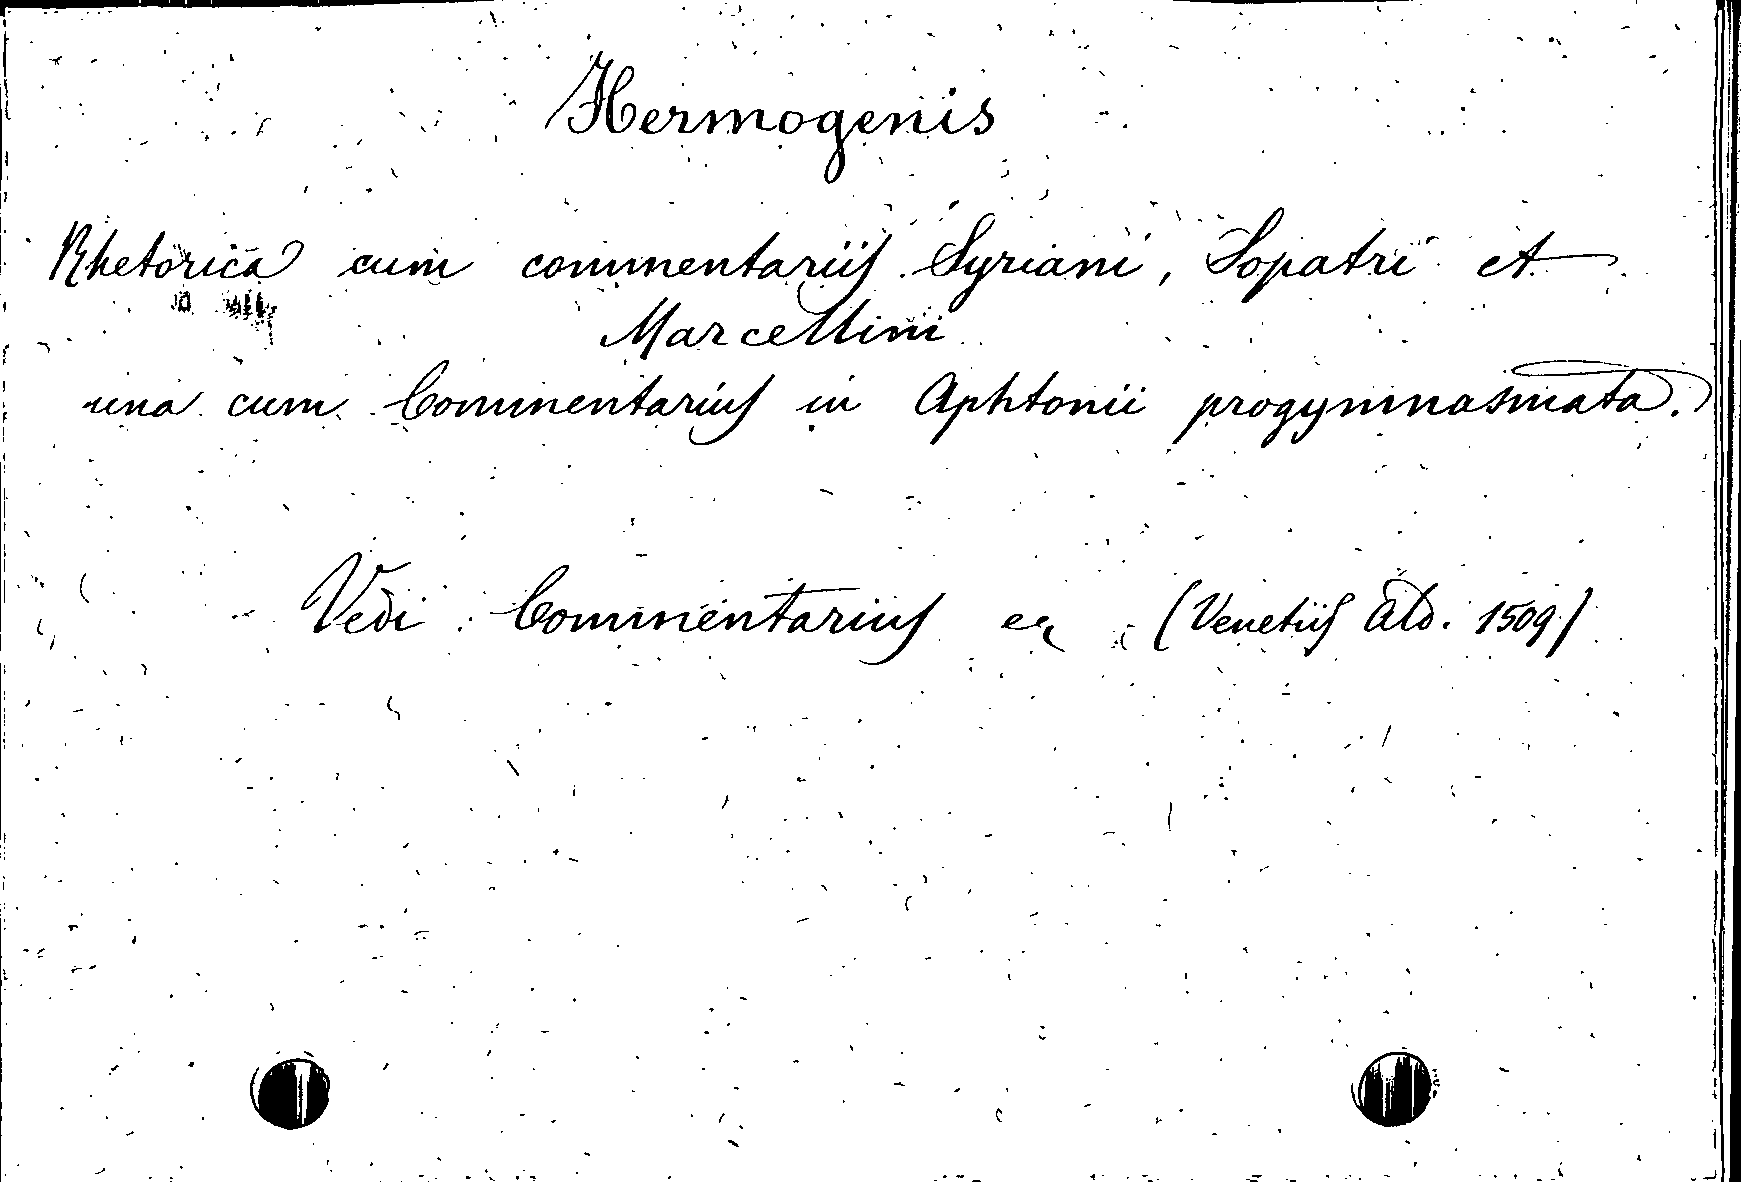 Hermogenis
Rhetorica cum commentariis Syriani, Sopatri et
Marcellini
una cum Commentariis in Aphtonii progymnasmata.
Vedi Commentarius (Venetiis Ald. 1509)